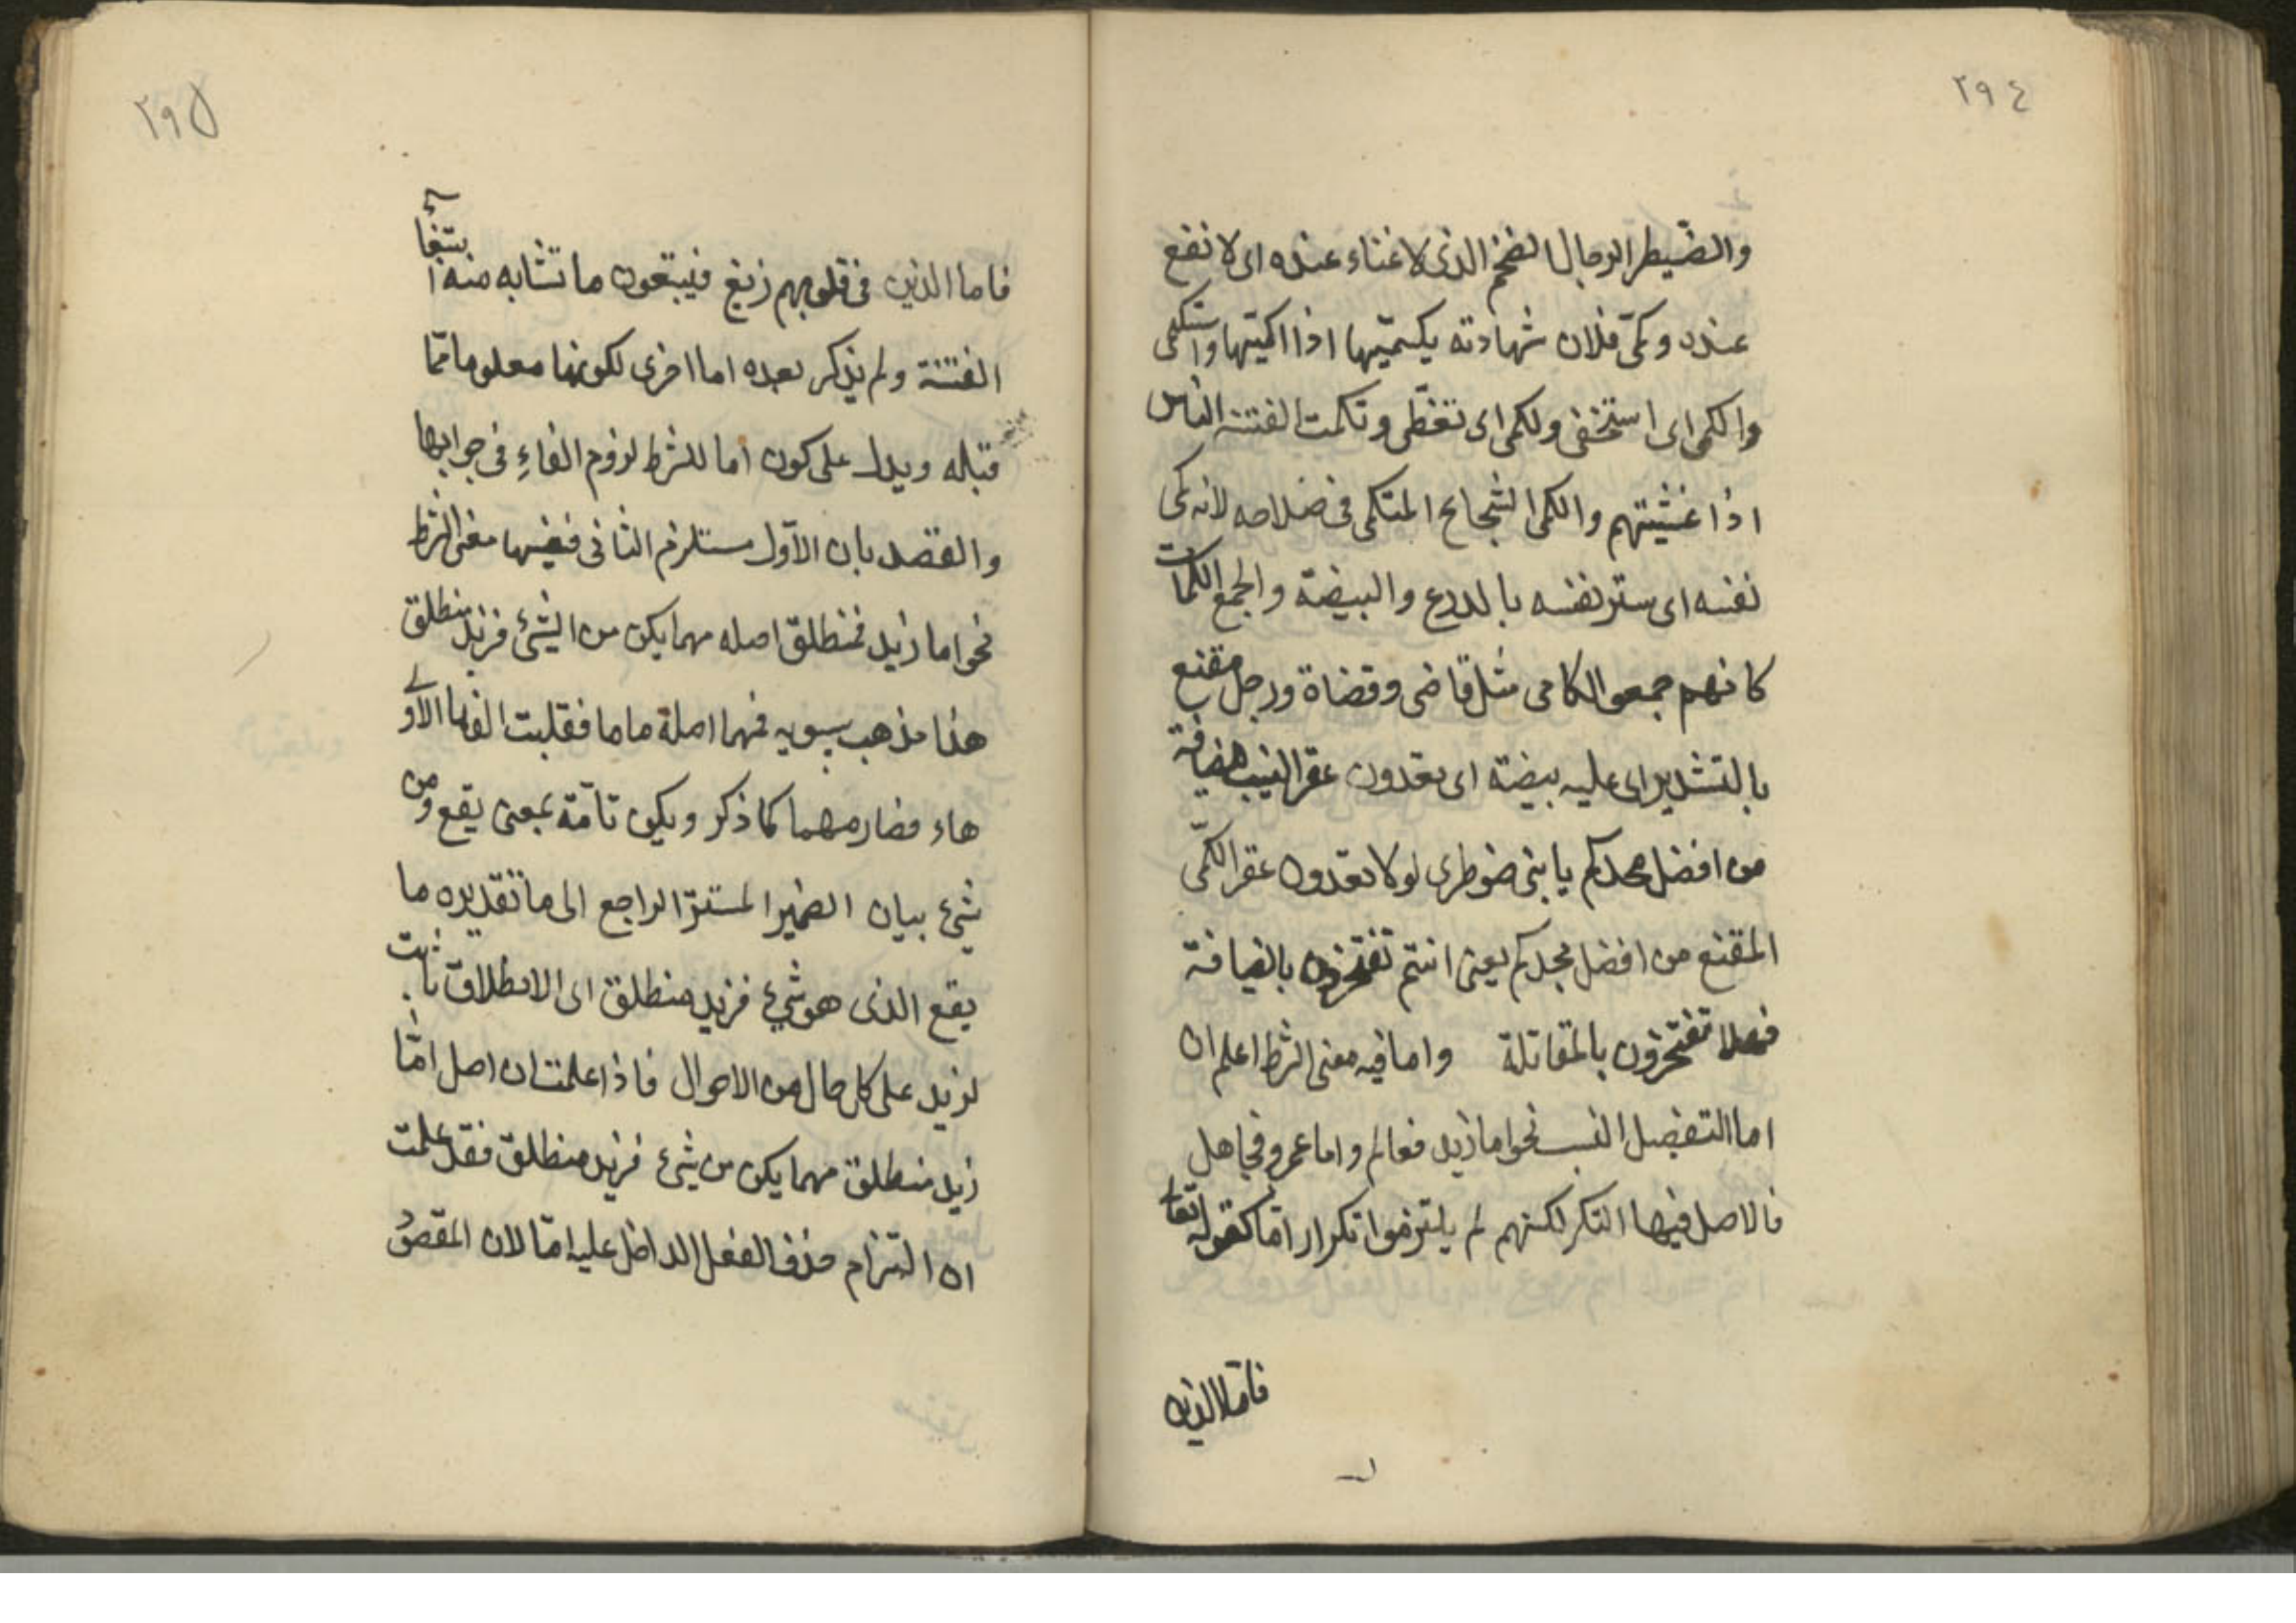 ٢٩٤
والضيطر الرجال الضخم الذى لا غناء عنده اى لا نفع
عنده وكمى فلان شهادته يكميها اذا اكميتها واستكمى
والكمى اى استخفى ولكمى اى تغطى وتكمت الفتنة الناس
اذا غشيتهم والكمى الشجاع المتكمى فى ضلاحه لانه كمى
نفسه اى ستر نفسه بالدرع والبيضة والجمع الكمات
كانهم جمعو الكامى مثل قاضى وقضاة ورجل مقنع
بالتشديد اى عليه بيضة اى تعدون عقر النيب ضيافة
من افضل مجدكم يا بنى ضوطرى لولا تعدون عقر الكمى
المقنع من افضل مجدكم يعنى انتم تفتخرون بالضيافة
فهلا تفتخرون بالمقاتلة واما فيه معنى الشرط اعلم ان
اما التفضيل النسـ نحو اما زيد فعالم واما عمرو فجاهل
فالاصل فيها التكر لكنهم لم يلتزموا تكرار امّا كقوله تعالى
فاما الذين
٢٩٥
فاما الذين فى قلوبهم زيغ فيبتعون ما تشابه منه ابتغاء
الفتنة ولم يذكر بعده اما اخرى لكونها معلوما ممّا
قبله ويدل على كون اما للشرط لزوم الفاء فى جوابها
والقصد بان الاوّل مستلزم الثانى ففيها معنى الشرط
نحو اما زيد فمنطلق اصله مهما يكن من الشئ فزيد منطلق
هذا مذهب سيبويه فمهما اصلة ما ما فقلبت الفها الاولى
هاء فصار مهما كما ذكر ويكون تامّة بمعنى يقع ومن
شئ بيان الضمير المستتر الراجع الى ما تقديره ما
يقع الذى هو شئ فزيد منطلق اى الانطلاق ثابت
لزيد على كل حال من الاحوال فاذا علمت ان اصل امّا
زيد منطلق مهما يكن من شئ فزيد منطلق فقد علمت
ان التزام حذف الفعل الداخل عليه امّا لان المقصود